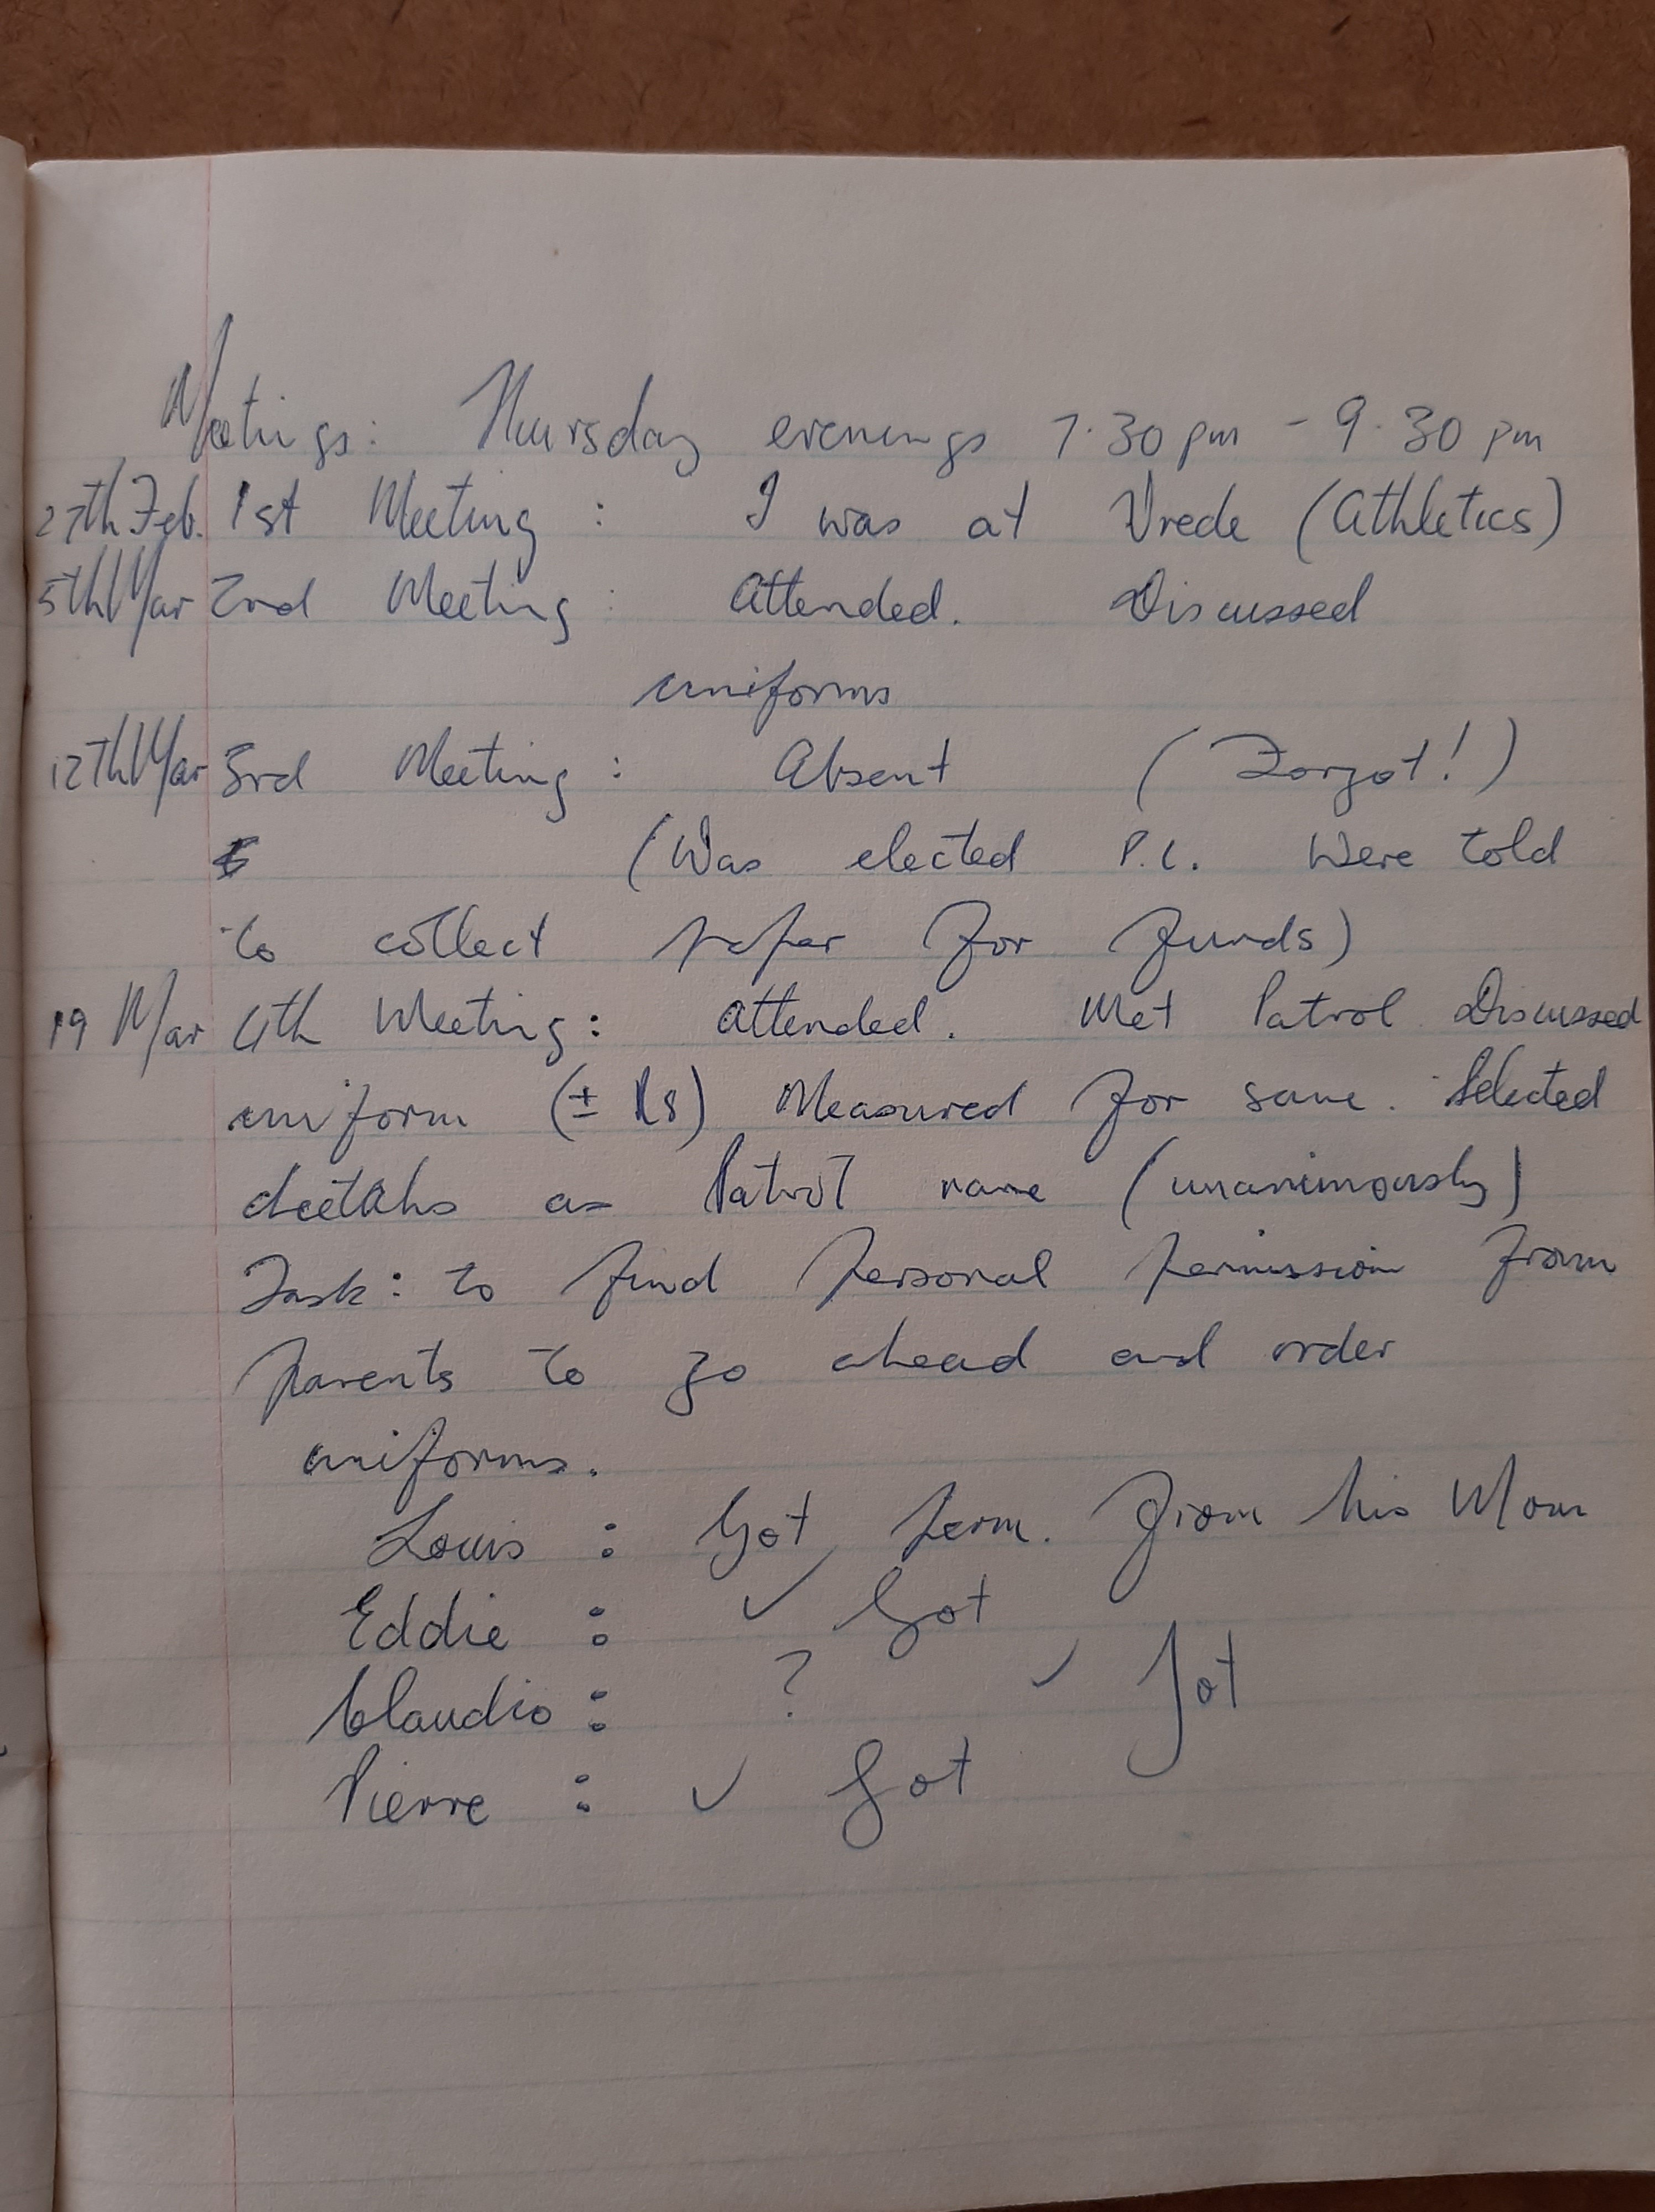 Meetings: Thursday evenings 7.30 pm - 9.30 pm
27th Feb. 1st Meeting : I was at Vrede (Athletics)
5th Mar 2nd Meeting : Attended. Discussed
uniforms
12th Mar 3rd Meeting : Absent (Forgot!)
(Was elected P.L. Were told
to collect paper for funds)
19 Mar 4th Meeting: Attended. Met Patrol Discussed
uniform (± R8) Measured for same. Selected
cheetahs as Patrol name (unanimously)
Task: to find personal permission from
parents to go ahead and order
uniforms.
Louis : Got perm. from his Mom
Eddie : ✓ Got
Claudio : ? ✓ Got
Pierre : ✓ Got